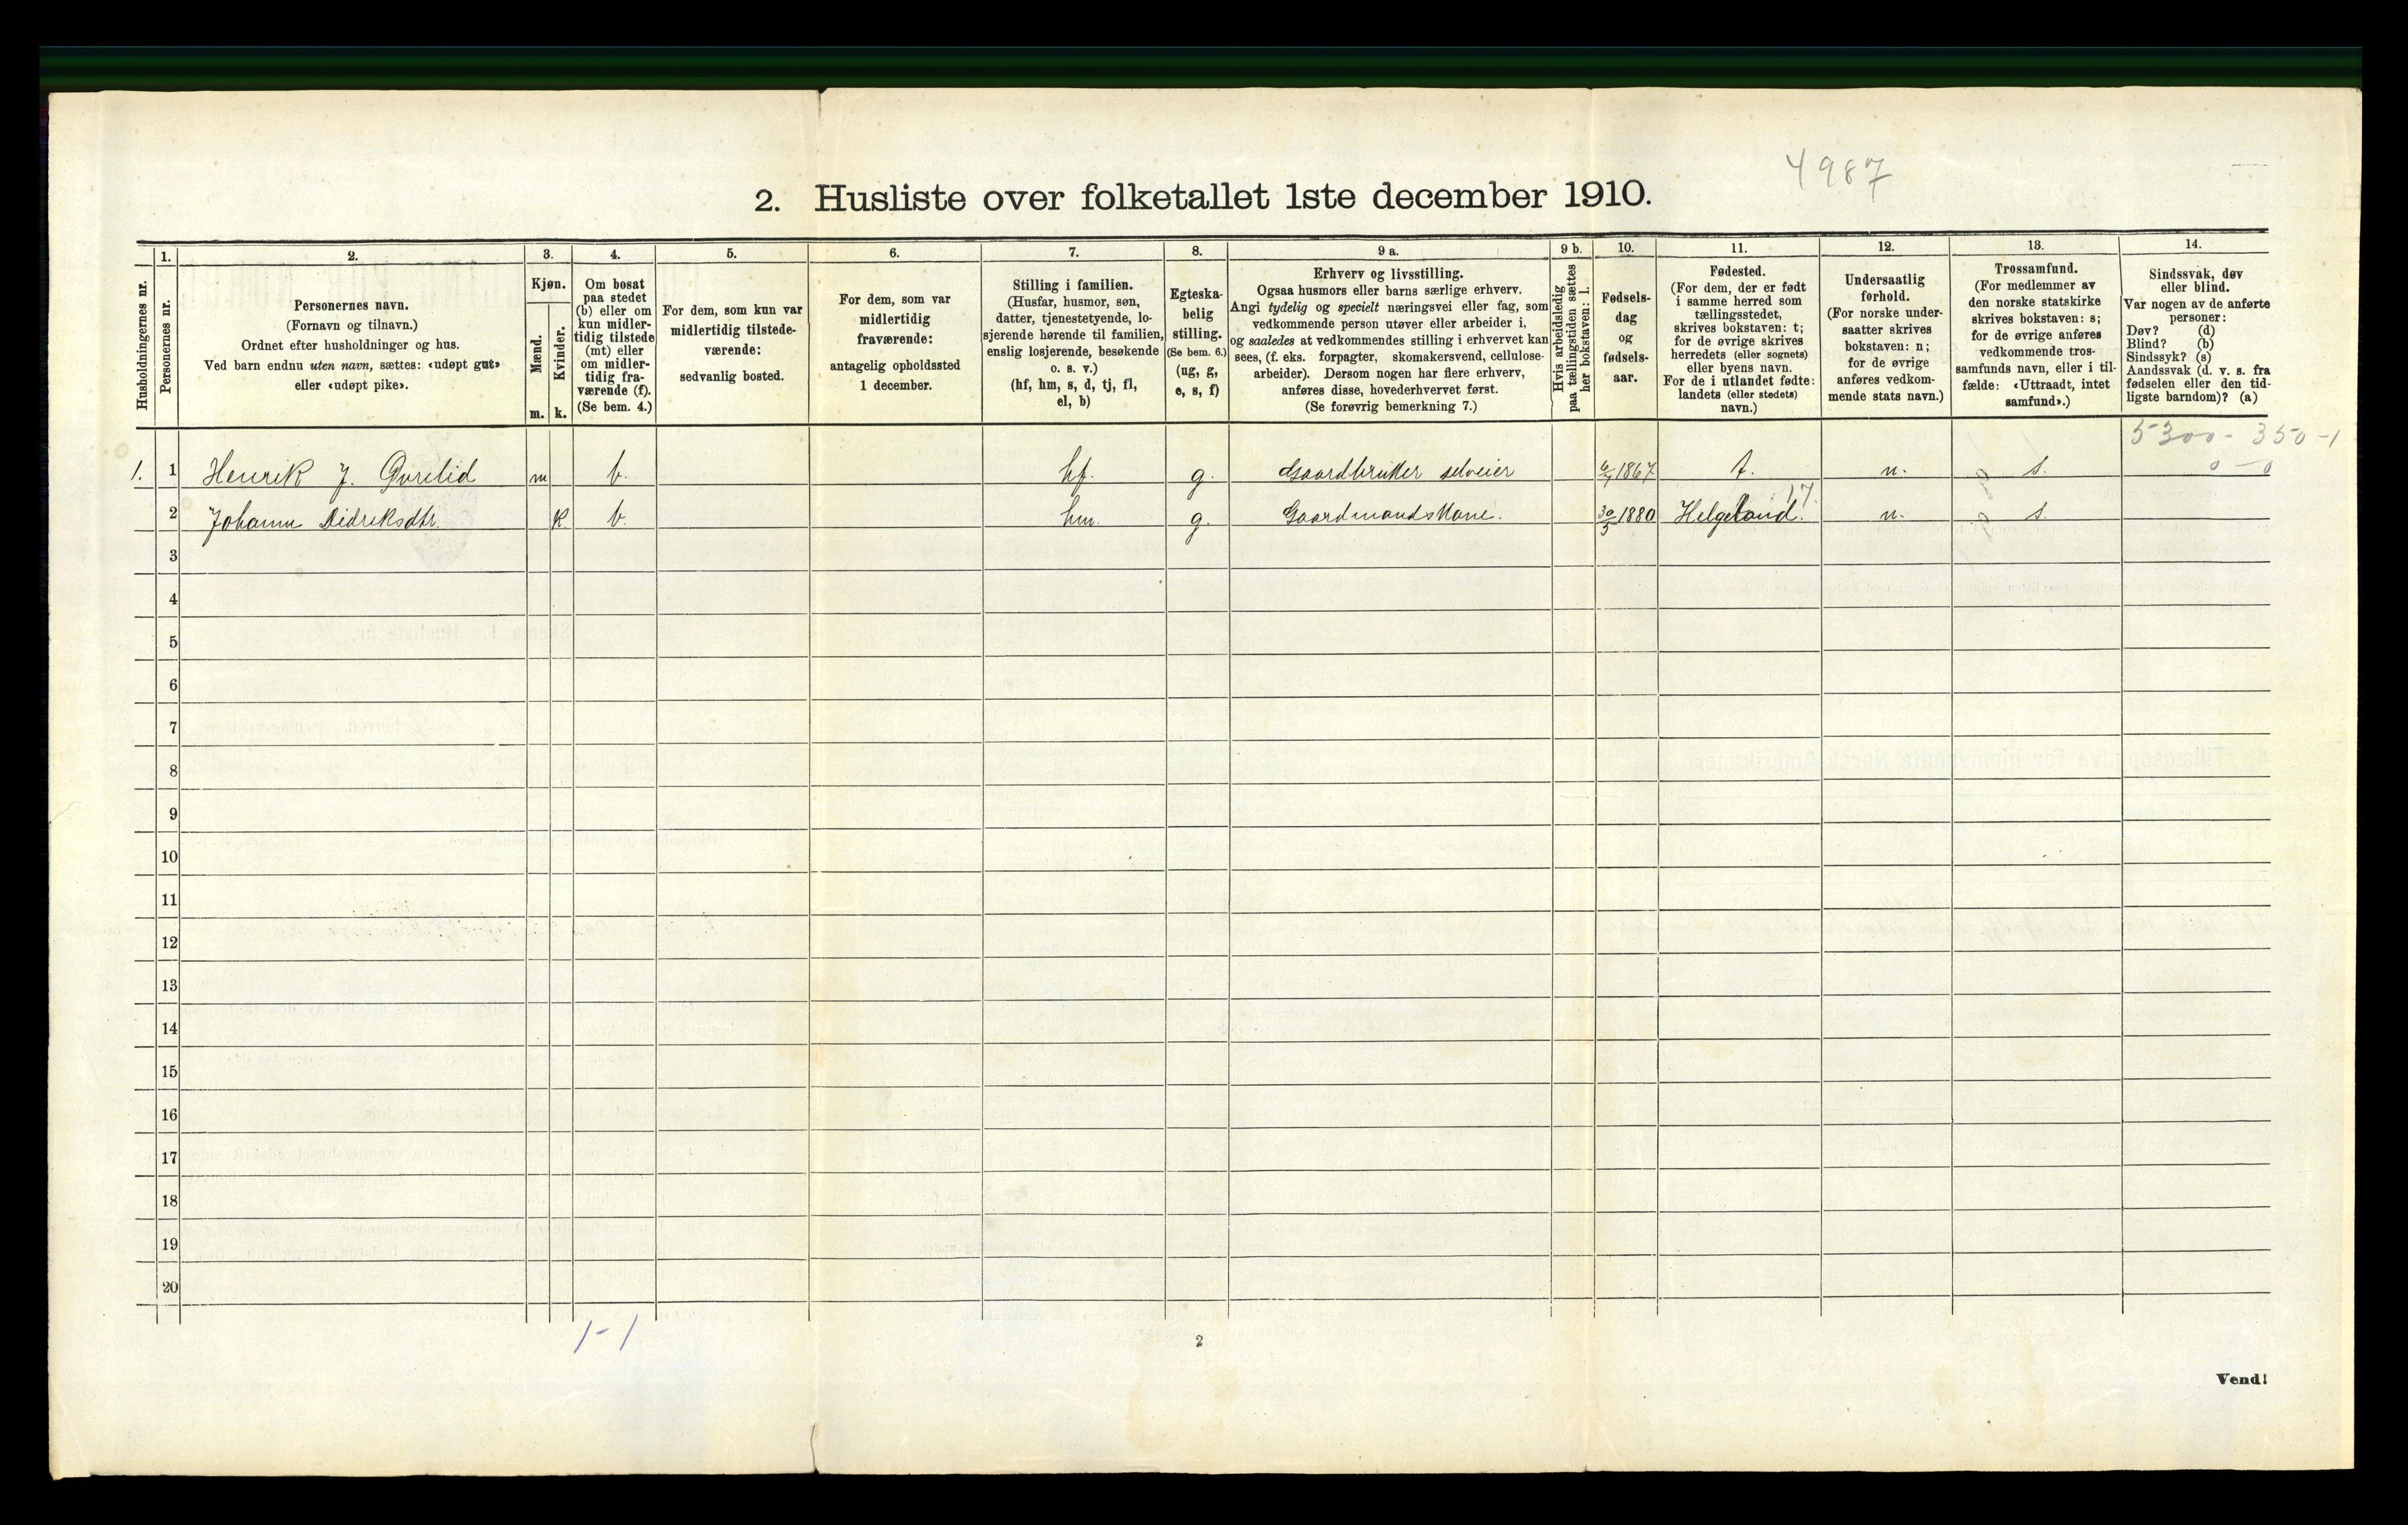 4987
2. Husliste over folketallet 1ste december 1910.
Husholdningernes nr.
1.
Personernes nr.
2.
Personernes navn.
(Fornavn og tilnavn.)
Ordnet efter husholdninger og hus.
Ved barn endnu uten navn, sættes: «udøpt gut»
eller «udøpt pike».
3.
Kjøn.
Mænd.
Kvinder.
m. k.
4.
Om bosat
paa stedet
(b) eller om
kun midler-
tidig tilstede
(mt) eller
om midler-
tidig fra-
værende (f).
(Se bem. 4.)
5.
For dem, som kun var
midlertidig tilstede-
værende:
sedvanlig bosted.
6.
For dem, som var
midlertidig
fraværende:
antagelig opholdssted
1 december.
7.
Stilling i familien.
(Husfar, husmor, søn,
datter, tjenestetyende, lo-
sjerende hørende til familien,
enslig losjerende, besøkende
o. s. v.)
(hf, hm, s, d, tj, fl,
el, b)
8.
Egteska-
belig
stilling.
(Se bem. 6.)
(ug, g,
e, s, f)
9 a.
Erhverv og livsstilling.
Ogsaa husmors eller barns særlige erhverv.
Angi tydelig og specielt næringsvei eller fag, som
vedkommende person utøver eller arbeider i,
og saaledes at vedkommendes stilling i erhvervet kan
sees, (f. eks. forpagter, skomakersvend, cellulose-
arbeider). Dersom nogen har flere erhverv,
anføres disse, hovederhvervet først.
(Se forøvrig bemerkning 7.)
9 b.
Hvis arbeidsledig
paa tællingstiden sættes
her bokstaven: l.
10.
Fødsels-
dag
og
fødsels-
aar.
11.
Fødested.
(For dem, der er født
i samme herred som
tællingsstedet,
skrives bokstaven: t;
for de øvrige skrives
herredets (eller sognets)
eller byens navn.
For de i utlandet fødte:
landets (eller stedets)
navn.)
12.
Undersaatlig
forhold.
(For norske under-
saatter skrives
bokstaven: n;
for de øvrige
anføres vedkom-
mende stats navn.)
13.
Trossamfund.
(For medlemmer av
den norske statskirke
skrives bokstaven: s;
for de øvrige anføres
vedkommende tros-
samfunds navn, eller i til-
fælde: «Uttraadt, intet
samfund».)
14.
Sindssvak, døv
eller blind.
Var nogen av de anførte
personer:
Døv? (d)
Blind? (b)
Sindssyk? (s)
Aandssvak (d. v. s. fra
fødselen eller den tid-
ligste barndom)? (a)
5300 - 350 - 1
0 - 0
1. 1 Henrik J. m b. hf. g. Gaardbruker selveier 1867 t. n. s.
17.
2 Johanne Didriksdtr. k b. hm. g. Gaardmandskone. 30/5 1880 Helgeland. n. s.
3
4
5
6
7
8
9
10
11
12
13
14
15
16
17
18
19
20
1-1
2
Vend!